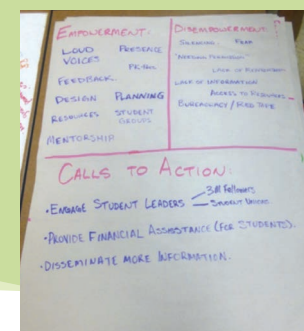 EMPOWERMENT:
LOUD VOICES
PRESENCE
FEEDBACK
DESIGN
PLANNING
RESOURCES
STUDENT GROUPS
MENTORSHIP
DISEMPOWERMENT:
SILENCING
FEAR
LACK OF
LACK OF INFORMATION
ACCESS TO RESOURCES
BUREAUCRACY / RED TAPE
CALLS TO ACTION:
• ENGAGE STUDENT LEADERS
STUDENT UNIONS
• PROVIDE FINANCIAL ASSISSTANCE (FOR STUDENTS).
• DISSEMINATE MORE INFORMATION.